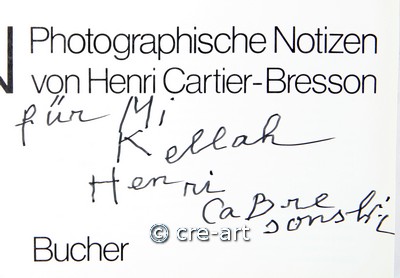 N Photographische Notizen
von Henri Cartier-Bresson
für Mi
Kellah
Henri
CaBre
Bucher
© cre-art